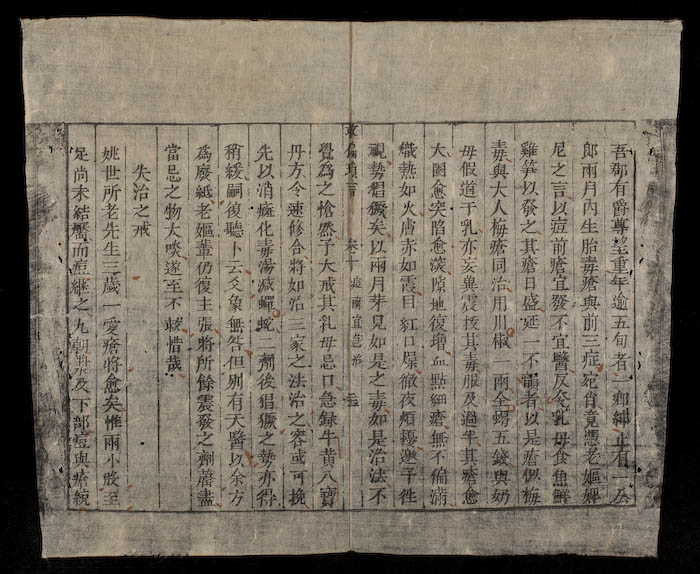 吾郡有爵尊望重年逾五旬者一鄉紳止有一公
郎兩月內生胎毒瘡與前三症宛肖竟憑老嫗婢
尼之言以痘前瘡宜發不宜醫反令乳母食魚鮮
雞笋以發之其瘡日盛延一不諳者以是瘡似梅
毒與大人梅瘡同治用川椒一兩全蝎五錢與奶
母假道于乳亦妄冀震拔其毒服及過半其瘡愈
大圈愈突陷愈深隙地復增血點細瘡無不徧滿
熾熱如火膚赤如霞目紅口燥徹夜煩擾邀予徃
視勢猖獗矣以兩月芽兒如是之毒如是治法不
救偏瑣言 卷十 宜速治
覺為之愴然予大戒其乳母忌口急錄牛黃八寶
丹方令速修合將如治三家之法治之容或可挽
先以消癍化毒湯減蟬蛻二劑後猖獗之勢亦得
稍緩嗣復聽卜云爻象無咎但別有天醫以余方
為廢紙老嫗輩仍復主張將所餘震發之劑罄盡
當忌之物大啖遂至不救惜哉
失治之戒
姚世所老先生三歲一愛瘡將愈矣惟兩小股至
足尚未結靨而痘繼之九朝漿及下部痘與瘡統